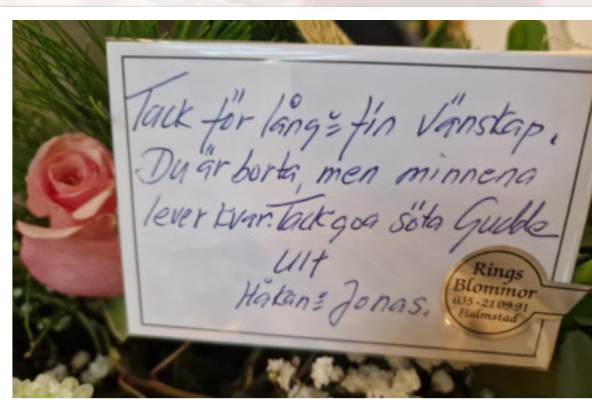 Tack för lång & fin vänskap.
Du är borta, men minnena
lever kvar. Tack goa söta Gudde
Ulf
Håkan & Jonas.
Rings
Blommor
035-21 09 91
Halmstad